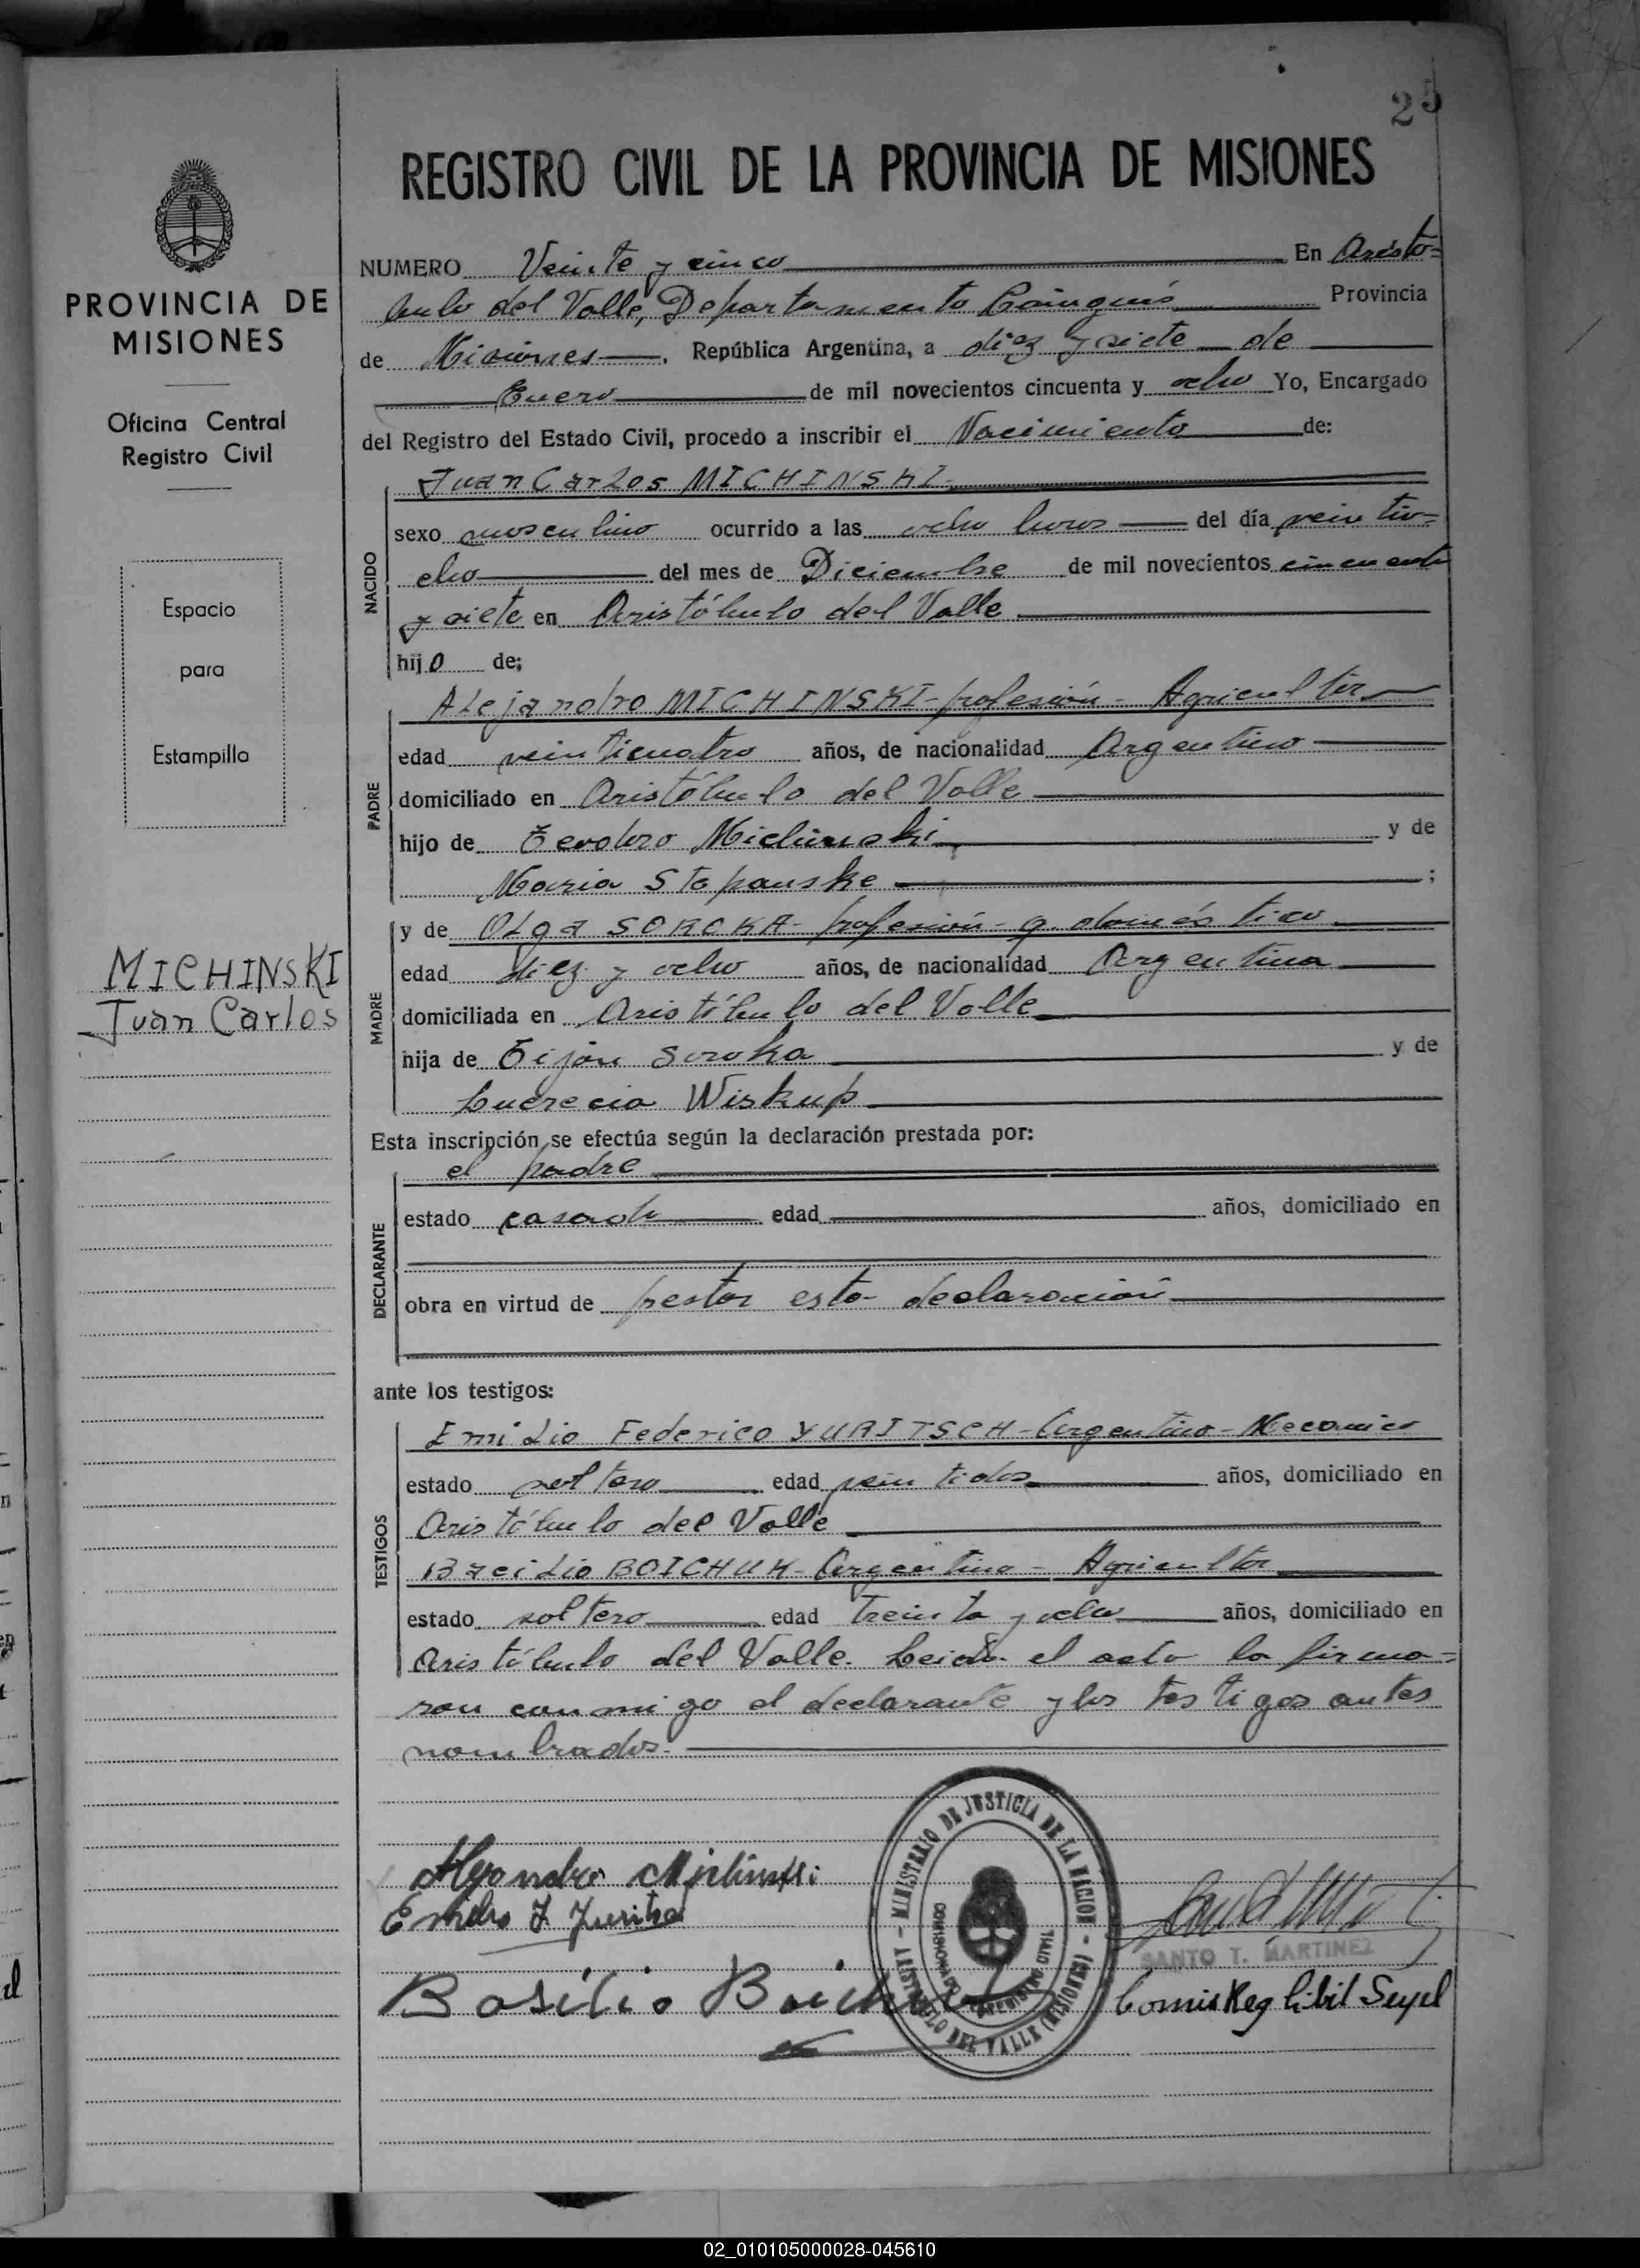 25
REGISTRO CIVIL DE LA PROVINCIA DE MISIONES
PROVINCIA DE
MISIONES
Oficina Central
Registro Civil
Espacio
para
Estampilla
MICHINSKI
Juan Carlos
NUMERO Veinte y cinco En Aristó=
bulo del Valle, Departamento Cainguás Provincia
de Misiones, República Argentina, a diez y siete de
Enero de mil novecientos cincuenta y ocho Yo, Encargado
del Registro del Estado Civil, procedo a inscribir el Nacimiento de:
NACIDO
Juan Carlos MICHINSKI
sexo masculino ocurrido a las ocho horas del día veintio=
cho del mes de Diciembre de mil novecientos cincuenta
y siete en Aristóbulo del Valle
hijo de;
PADRE
Alejandro MICHINSKI - profesión - Agricultor
edad veinticuatro años, de nacionalidad Argentino
domiciliado en Aristóbulo del Valle
hijo de Teodoro Michinski y de
Maria Stepanske ;
MADRE
y de Olga SOROKA - profesión - q. doméstico
edad diez y ocho años, de nacionalidad Argentina
domiciliada en Aristóbulo del Valle
hija de Soroka y de
Lucrecia Wiskup
Esta inscripción se efectúa según la declaración prestada por:
DECLARANTE
el padre
estado casado edad años, domiciliado en
obra en virtud de pestar esta declaración
ante los testigos:
TESTIGOS
Emilio Federico YURITSCH - Argentino - Mecanico
estado soltero edad veintidos años, domiciliado en
Aristóbulo del Valle
Bacilio BOICHUK - Argentino - Agricultor
estado soltero edad Treinta y ocho años, domiciliado en
Aristóbulo del Valle. Leida el acta la firma=
ron conmigo el declarante y los testigos antes
nombrados.
Alejandro Michinski
Emilio F. Yuritsch
Basilio Boichuk
MINISTERIO DE JUSTICIA DE LA NACION
ARISTOBULO DEL VALLE (MISIONES)
SANTO T. MARTINEZ
Comis Reg Cibil Supl
02_010105000028-045610